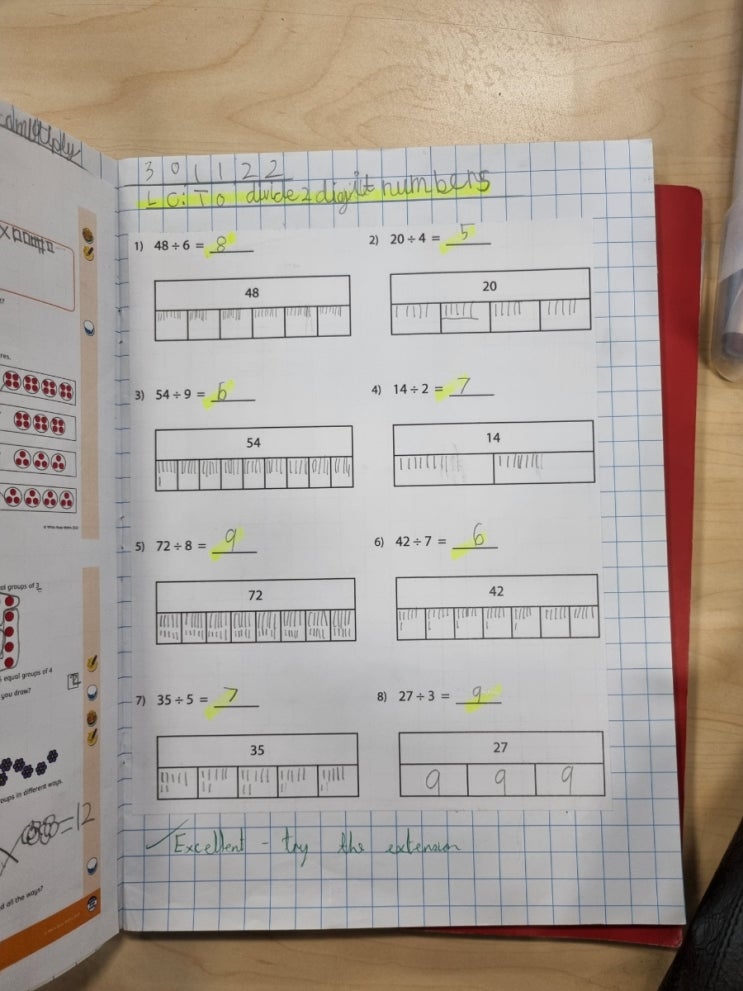 multiply
res.
© White Rose Maths 2022
al groups of 3
equal groups of 4
you draw?
oups in different ways.
=12
d all the ways?
301122
LC: To divide 2 digit numbers
1) 48 ÷ 6 = 8
48
2) 20 ÷ 4 = 5
20
3) 54 ÷ 9 = 6
54
4) 14 ÷ 2 = 7
14
5) 72 ÷ 8 = 9
72
6) 42 ÷ 7 = 6
42
7) 35 ÷ 5 = 7
35
8) 27 ÷ 3 = 9
27
9 9 9
✓Excellent - try the extension